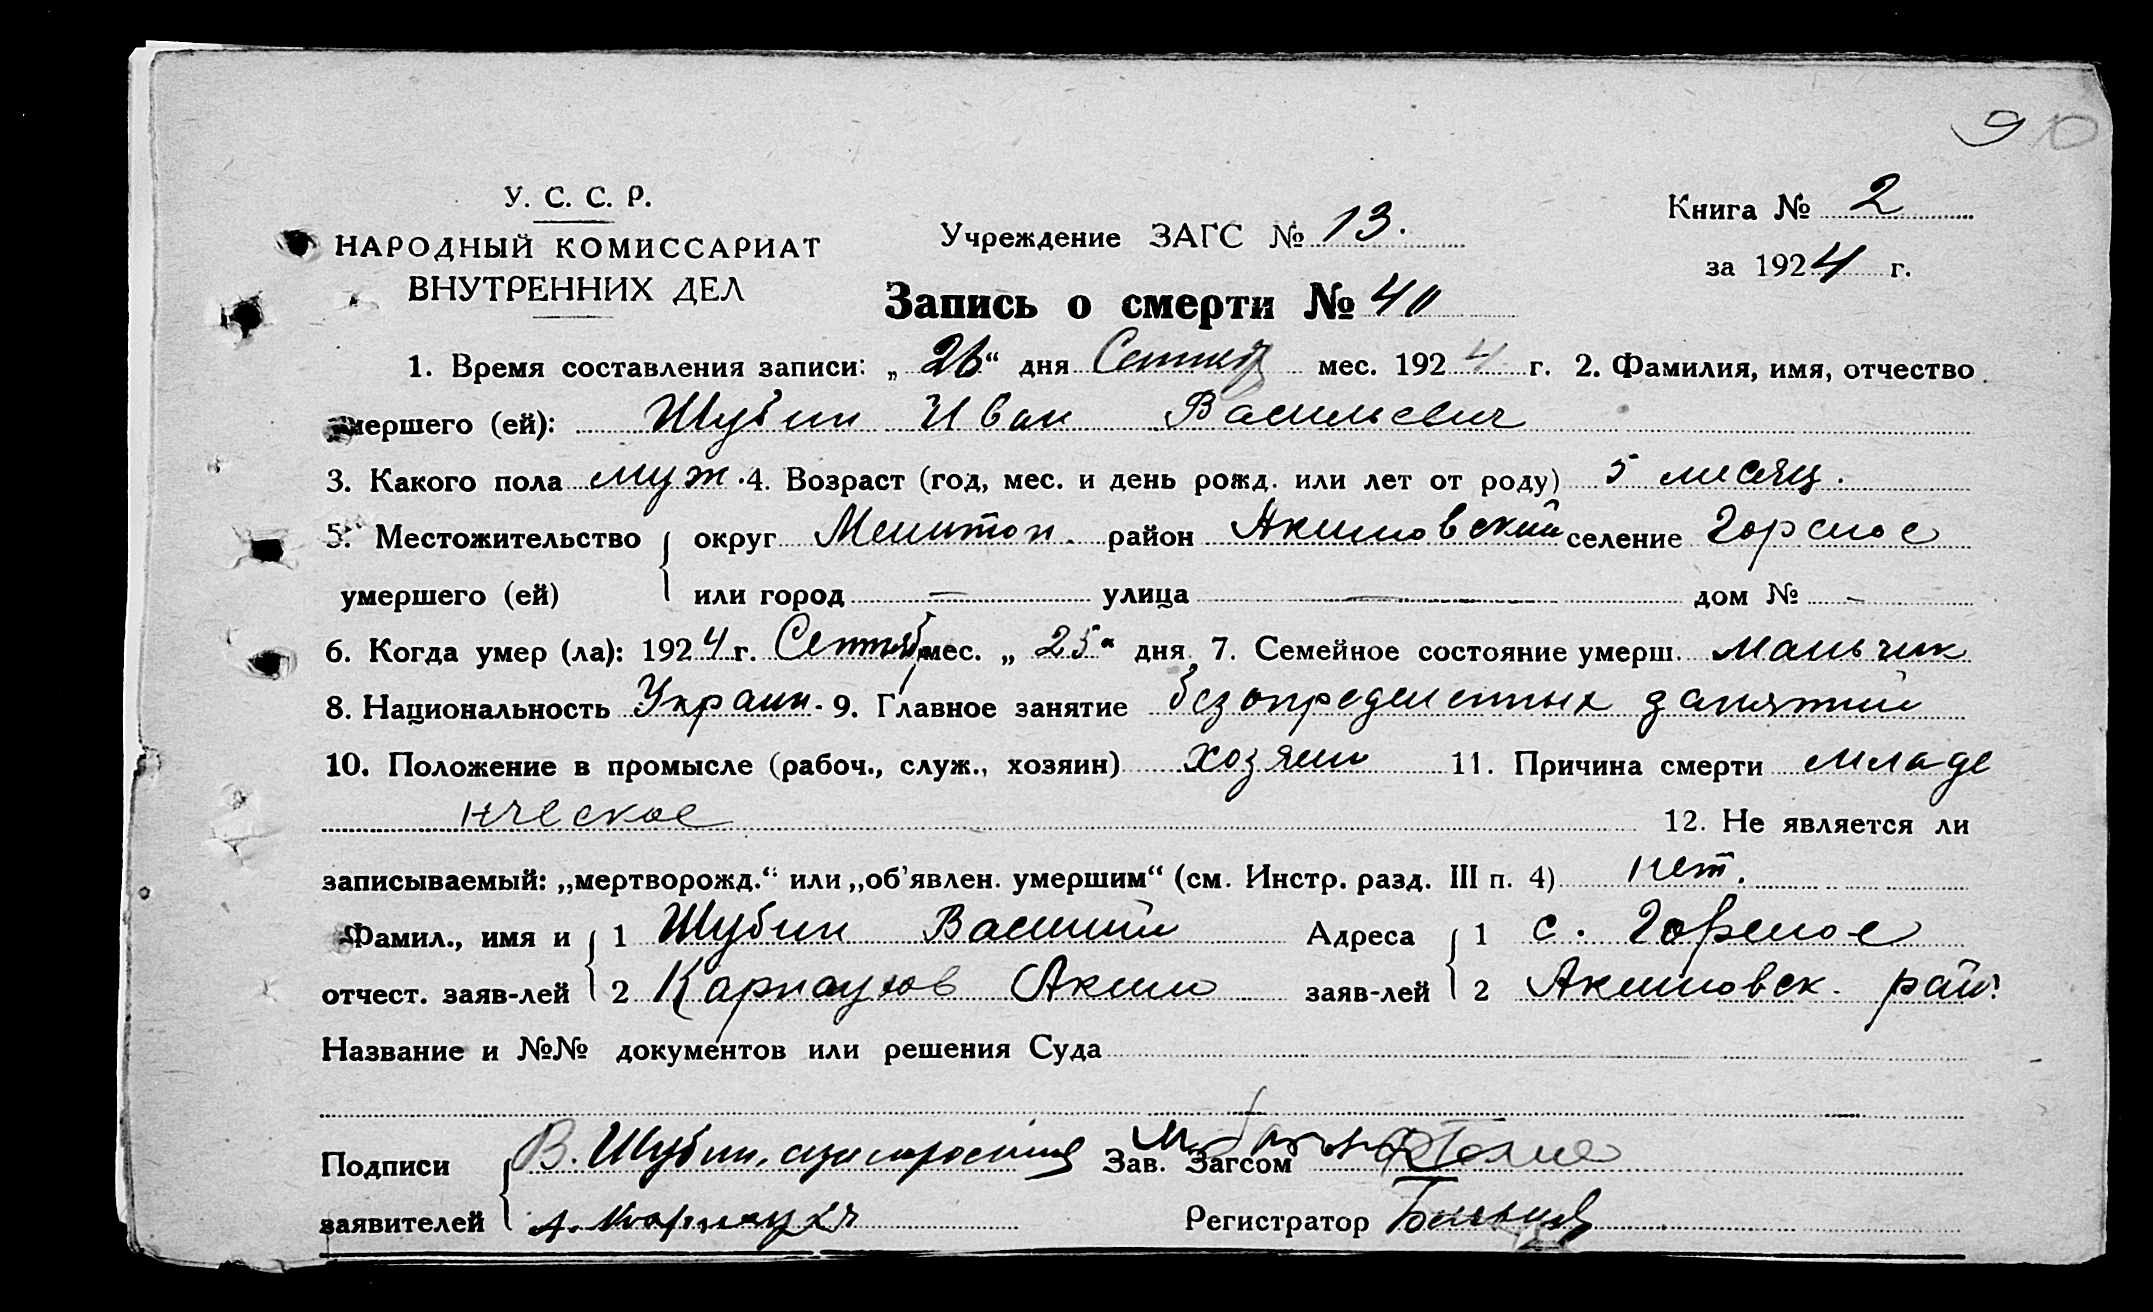 90
У. С. С. Р.
НАРОДНЫЙ КОМИССАРИАТ
ВНУТРЕННИХ ДЕЛ
Учреждение ЗАГС № 13.
Книга № 2
за 1924 г.
Запись о смерти № 40
1. Время составления записи: „26“ дня Сентяб мес. 1924 г. 2. Фамилия, имя, отчество
умершего (ей): Шубин Иван Васильевич
3. Какого пола муж. 4. Возраст (год, мес. и день рожд. или лет от роду) 5 месяц.
5. Местожительство округ Мелитоп. район Акимовский селение Горсное
умершего (ей) или город — улица — дом № -
6. Когда умер (ла): 1924 г. Сентябр мес. „25“ дня 7. Семейное состояние умерш. мальчик
8. Национальность Украин. 9. Главное занятие безопределенных занятий
10. Положение в промысле (рабоч., служ., хозяин) хозяин 11. Причина смерти младе
нческое 12. Не является ли
записываемый: „мертворожд.“ или „об'явлен. умершим“ (см. Инстр. разд. III п. 4) нет.
Фамил., имя и 1 Шубин Василий Адреса 1 с. Горсное
отчест. заяв-лей 2 Карнаухов Аким заяв-лей 2 Акимовск. район
Название и №№ документов или решения Суда
Подписи В. Шубин, Зав. Загсом
заявителей А. Карнаух Регистратор